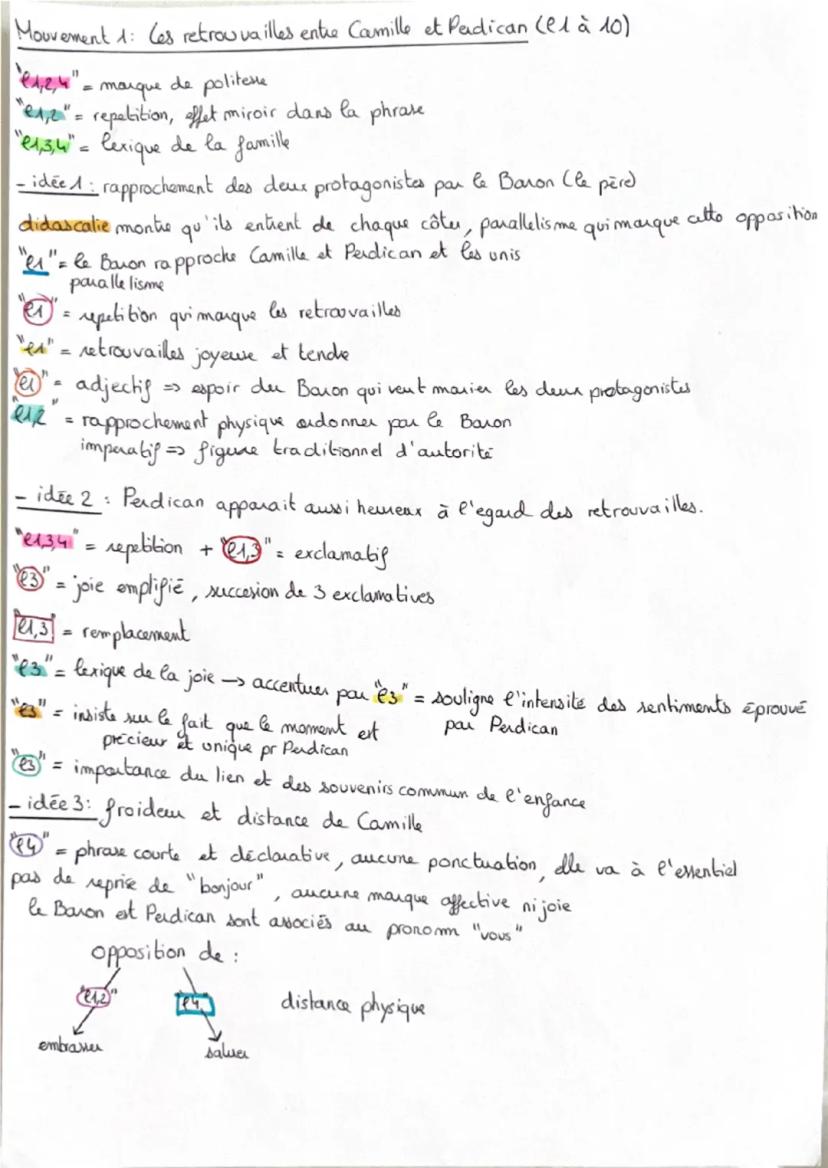 Mouvement 1: Les retrouvailles entre Camille et Perdican (l1 à 10)
"l1,2,4" = marque de politesse
"l1,2" = repetition, effet miroir dans la phrase
"l1,3,4" = lexique de la famille
- idée 1 : rapprochement des deux protagonistes par le Baron (le père)
didascalie montre qu'ils entrent de chaque côter, parallelisme qui marque cette opposition
"l1" = le Baron rapproche Camille et Perdican et les unis
parallelisme
"l1" = repetition qui marque les retrouvailles
"l1" = retrouvailles joyeuse et tendre
"l1" = adjectif => espoir du Baron qui veut marier les deux protagonistes
"l1,2" = rapprochement physique ordonner par le Baron
imperatif => figure traditionnel d'autorité
- idée 2 : Perdican apparait aussi heureux à l'egard des retrouvailles.
"l1,3,4" = repetition + "l1,3" = exclamatif
"l3" = joie emplifié, succesion de 3 exclamatives
l1,3 = remplacement
"l3" = lexique de la joie -> accentuer par "l3" = souligne l'intensité des sentiments éprouvé
par Perdican
"l3" = insiste sur le fait que le moment est
précieux et unique pr Perdican
"l3" = importance du lien et des souvenirs commun de l'enfance
- idée 3: froideur et distance de Camille
"l4" = phrase courte et déclarative, aucune ponctuation, elle va à l'essentiel
pas de reprise de "bonjour", aucune marque affective ni joie
le Baron et Perdican sont associés au pronom "vous"
opposition de :
"l1,2" "l4" distance physique
embrasser saluer